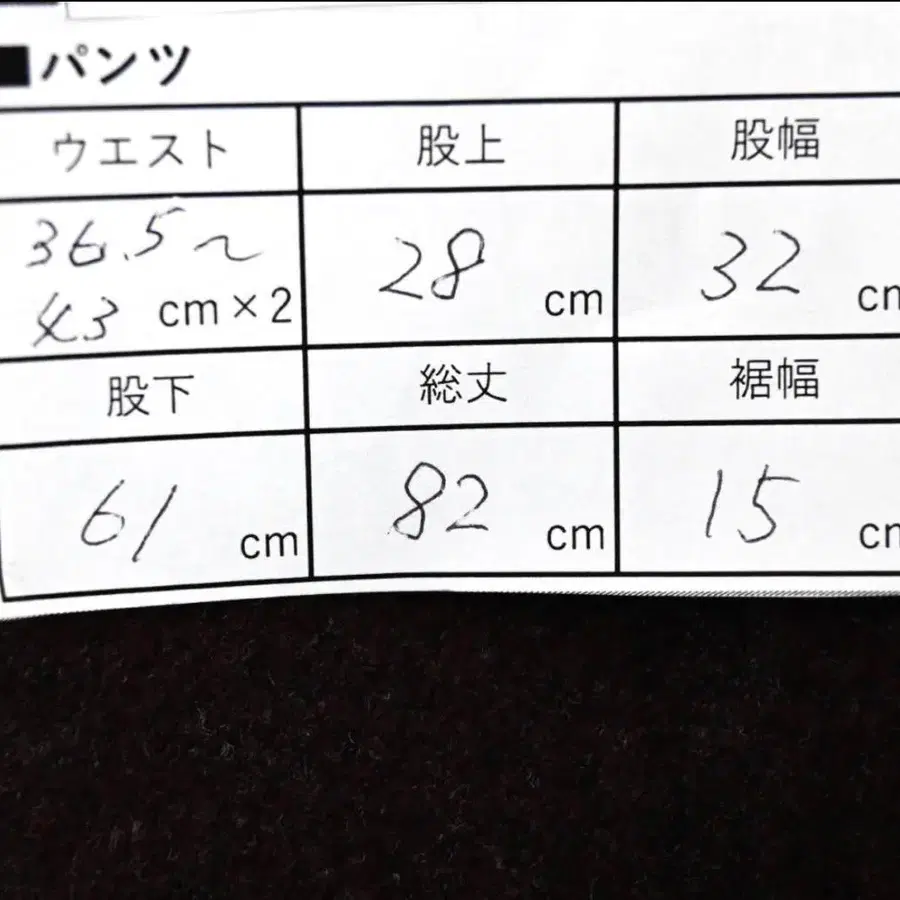 ■パンツ
ウエスト 股上 股幅
36.5〜
43 cm×2 28 cm 32 cm
股下 総丈 裾幅
61 cm 82 cm 15 cm